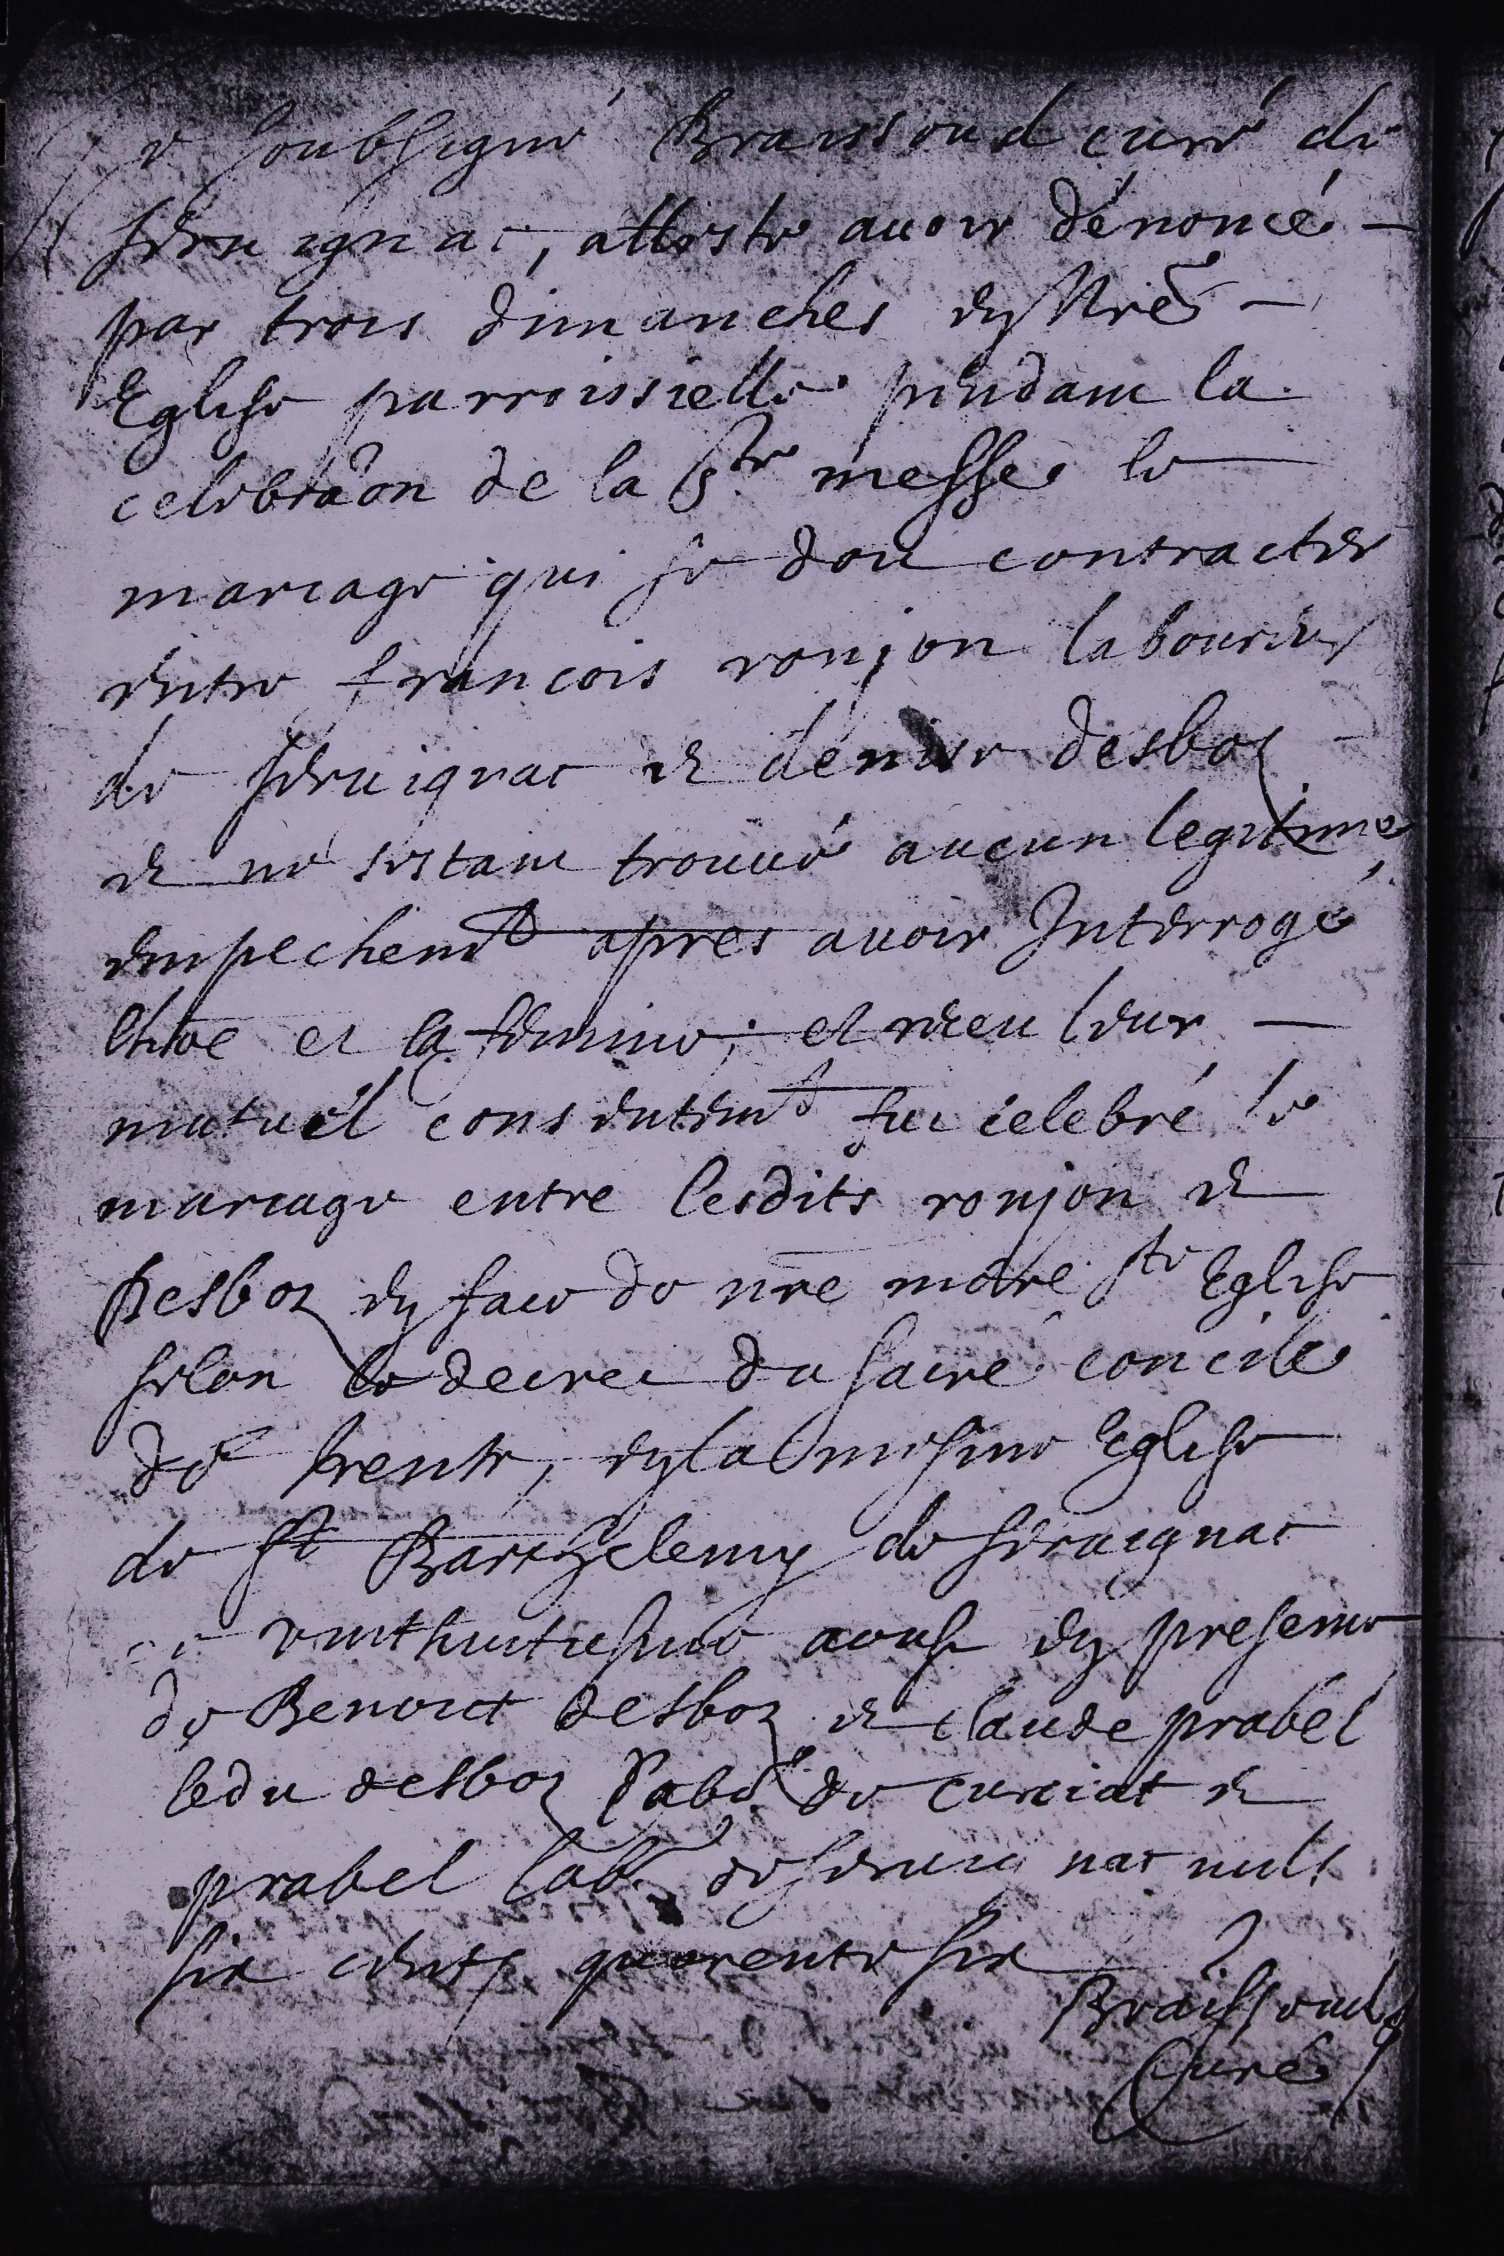 Je soubsigné Braissoud curé de
servignac, atteste avoir dénoncé -
par trois dimanches en Nre -
Eglise parroissielle pendant la
celebraõn de la Ste messe le
mariage qui se doit contracter
entre francois ronjon laboureur
de servignac et denise desboz -
et ne sestant trouvé aucun legitime
empechemt apres avoir Interrogé
lhõe et la femme, et receu leur -
mutuel consentemt fut celebré le
mariage entre lesdits ronjon et
Desboz en face de nre mere ste Eglise
selon le decret du sacré concile
de trente, en la mesme Eglise
de st Barthelemy de servignac
ce vinthuitiesme aoust en presence
de Benoict desboz et claude prabel
ledit desboz labr de curciat et
prabel labr de servignac mils
six cents quarente six
Braissoud
Curé